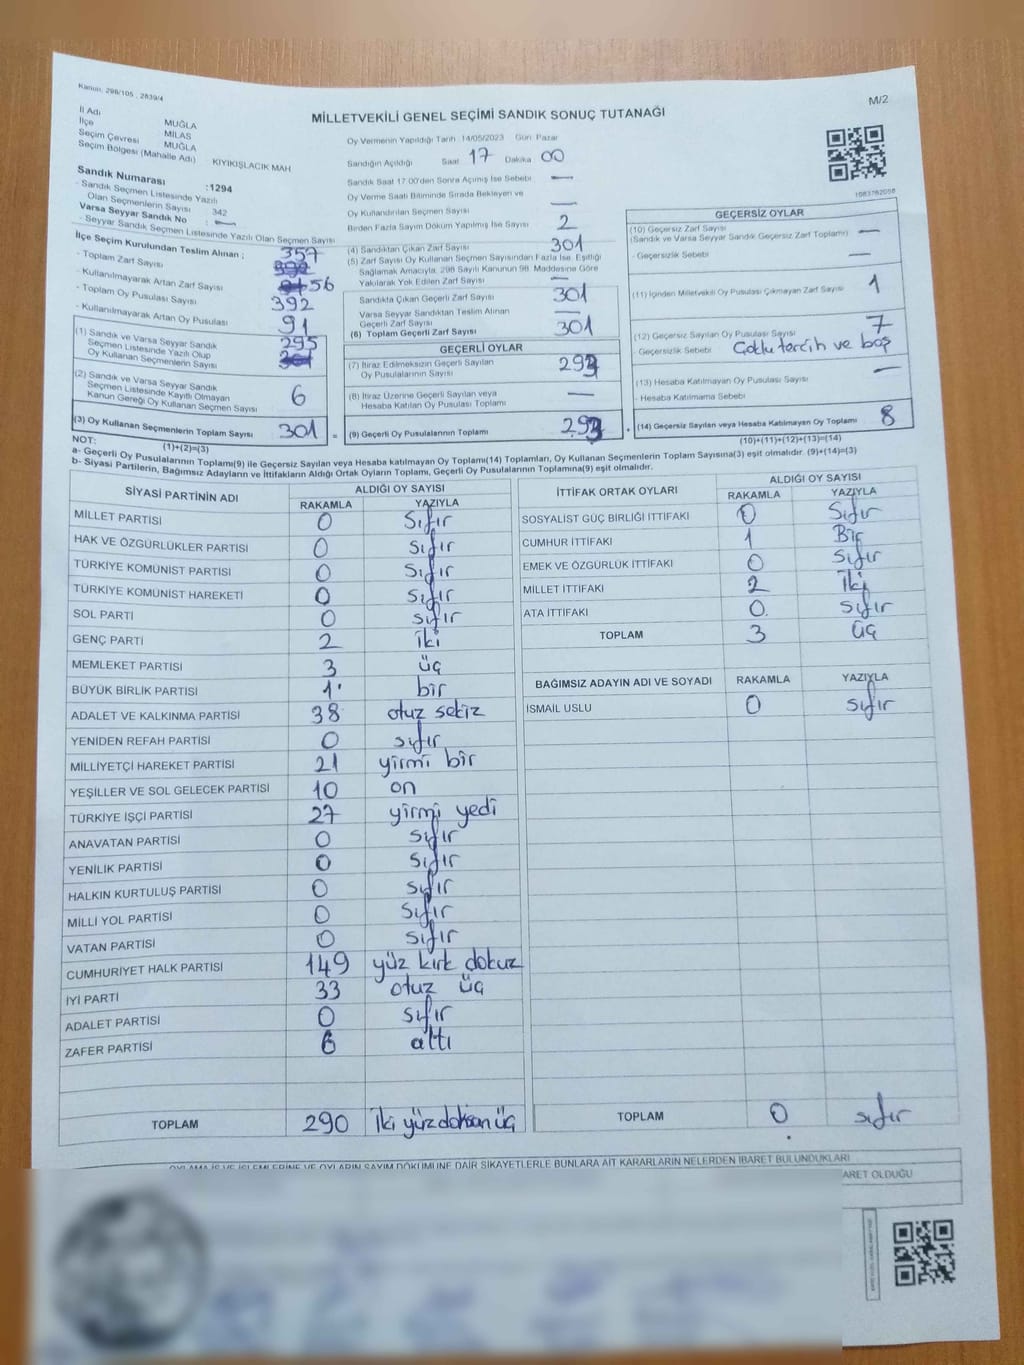 Kanun, 298/105 , 2839/4
M/2
MİLLETVEKİLİ GENEL SEÇİMİ SANDIK SONUÇ TUTANAĞI
İl Adı MUĞLA
İlçe MİLAS
Seçim Çevresi MUĞLA
Seçim Bölgesi (Mahalle Adı) KIYIKIŞLACIK MAH
Sandık Numarası :1294
- Sandık Seçmen Listesinde Yazılı
Olan Seçmenlerin Sayısı 342
Varsa Seyyar Sandık No : —
- Seyyar Sandık Seçmen Listesinde Yazılı Olan Seçmen Sayısı
İlçe Seçim Kurulundan Teslim Alınan ;
- Toplam Zarf Sayısı 357
- Kullanılmayarak Artan Zarf Sayısı 56
- Toplam Oy Pusulası Sayısı 392
- Kullanılmayarak Artan Oy Pusulası 91
(1) Sandık ve Varsa Seyyar Sandık
Seçmen Listesinde Yazılı Olup
Oy Kullanan Seçmenlerin Sayısı 295
(2) Sandık ve Varsa Seyyar Sandık
Seçmen Listesinde Kayıtlı Olmayan
Kanun Gereği Oy Kullanan Seçmen Sayısı 6
(3) Oy Kullanan Seçmenlerin Toplam Sayısı 301 =
(1)+(2)=(3)
Oy Vermenin Yapıldığı Tarih :14/05/2023 Gün: Pazar
Sandığın Açıldığı Saat 17 Dakika 00
Sandık Saat 17.00'den Sonra Açılmış İse Sebebi —
Oy Verme Saati Bitiminde Sırada Bekleyen ve
Oy Kullandırılan Seçmen Sayısı —
Birden Fazla Sayım Döküm Yapılmış İse Sayısı 2
(4) Sandıktan Çıkan Zarf Sayısı 301
(5) Zarf Sayısı Oy Kullanan Seçmen Sayısından Fazla İse, Eşitliği
Sağlamak Amacıyla, 298 Sayılı Kanunun 98. Maddesine Göre
Yakılarak Yok Edilen Zarf Sayısı —
Sandıkta Çıkan Geçerli Zarf Sayısı 301
Varsa Seyyar Sandıktan Teslim Alınan
Geçerli Zarf Sayısı —
(6) Toplam Geçerli Zarf Sayısı 301
GEÇERLİ OYLAR
(7) İtiraz Edilmeksizin Geçerli Sayılan
Oy Pusulalarının Sayısı 293
(8) İtiraz Üzerine Geçerli Sayılan veya
Hesaba Katılan Oy Pusulası Toplamı —
(9) Geçerli Oy Pusulalarının Toplamı 293
1083762058
GEÇERSİZ OYLAR
(10) Geçersiz Zarf Sayısı
(Sandık ve Varsa Seyyar Sandık Geçersiz Zarf Toplamı) —
- Geçersizlik Sebebi: —
(11) İçinden Milletvekili Oy Pusulası Çıkmayan Zarf Sayısı 1
(12) Geçersiz Sayılan Oy Pusulası Sayısı 7
- Geçersizlik Sebebi Çoklu tercih ve boş
(13) Hesaba Katılmayan Oy Pusulası Sayısı —
- Hesaba Katılmama Sebebi
(14) Geçersiz Sayılan veya Hesaba Katılmayan Oy Toplamı 8
(10)+(11)+(12)+(13)=(14)
NOT:
a- Geçerli Oy Pusulalarının Toplamı(9) ile Geçersiz Sayılan veya Hesaba katılmayan Oy Toplamı(14) Toplamları, Oy Kullanan Seçmenlerin Toplam Sayısına(3) eşit olmalıdır. (9)+(14)=(3)
b- Siyasi Partilerin, Bağımsız Adayların ve İttifakların Aldığı Ortak Oyların Toplamı, Geçerli Oy Pusulalarının Toplamına(9) eşit olmalıdır.
SİYASİ PARTİNİN ADI ALDIĞI OY SAYISI
RAKAMLA YAZIYLA
MİLLET PARTİSİ 0 Sıfır
HAK VE ÖZGÜRLÜKLER PARTİSİ 0 Sıfır
TÜRKİYE KOMÜNİST PARTİSİ 0 Sıfır
TÜRKİYE KOMÜNİST HAREKETİ 0 Sıfır
SOL PARTİ 0 sıfır
GENÇ PARTİ 2 iki
MEMLEKET PARTİSİ 3 üç
BÜYÜK BİRLİK PARTİSİ 1 bir
ADALET VE KALKINMA PARTİSİ 38 otuz sekiz
YENİDEN REFAH PARTİSİ 0 sıfır
MİLLİYETÇİ HAREKET PARTİSİ 21 yirmi bir
YEŞİLLER VE SOL GELECEK PARTİSİ 10 on
TÜRKİYE İŞÇİ PARTİSİ 27 yirmi yedi
ANAVATAN PARTİSİ 0 sıfır
YENİLİK PARTİSİ 0 sıfır
HALKIN KURTULUŞ PARTİSİ 0 sıfır
MİLLİ YOL PARTİSİ 0 sıfır
VATAN PARTİSİ 0 sıfır
CUMHURİYET HALK PARTİSİ 149 yüz kırk dokuz
İYİ PARTİ 33 otuz üç
ADALET PARTİSİ 0 sıfır
ZAFER PARTİSİ 6 altı
TOPLAM 290 iki yüz doksan üç
İTTİFAK ORTAK OYLARI ALDIĞI OY SAYISI
RAKAMLA YAZIYLA
SOSYALİST GÜÇ BİRLİĞİ İTTİFAKI 0 Sıfır
CUMHUR İTTİFAKI 1 Bir
EMEK VE ÖZGÜRLÜK İTTİFAKI 0 sıfır
MİLLET İTTİFAKI 2 iki
ATA İTTİFAKI 0 sıfır
TOPLAM 3 üç
BAĞIMSIZ ADAYIN ADI VE SOYADI RAKAMLA YAZIYLA
İSMAİL USLU 0 sıfır
TOPLAM 0 sıfır
OYLAMA İŞ VE İŞLEMLERİNE VE OYLARIN SAYIM DÖKÜMÜNE DAİR ŞİKAYETLERLE BUNLARA AİT KARARLARIN NELERDEN İBARET BULUNDUKLARI
ARET OLDUĞU